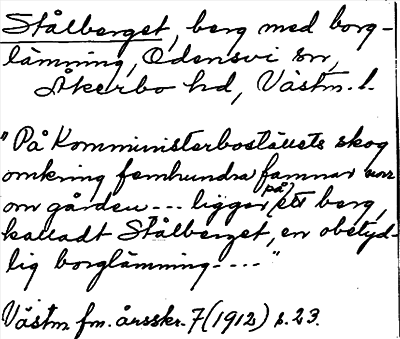 Stålberget, berg med borg-
lämning, Odensvi sn,
Åkerbo hd, Västm. l.
"På Komministerboställets skog
omkring femhundra famnar norr
om gården --- ligger på ett berg,
kalladt Stålberget, en obetyd-
lig borglämning. ---- "
Västm fm. årsskr. 7 (1912) s. 23.